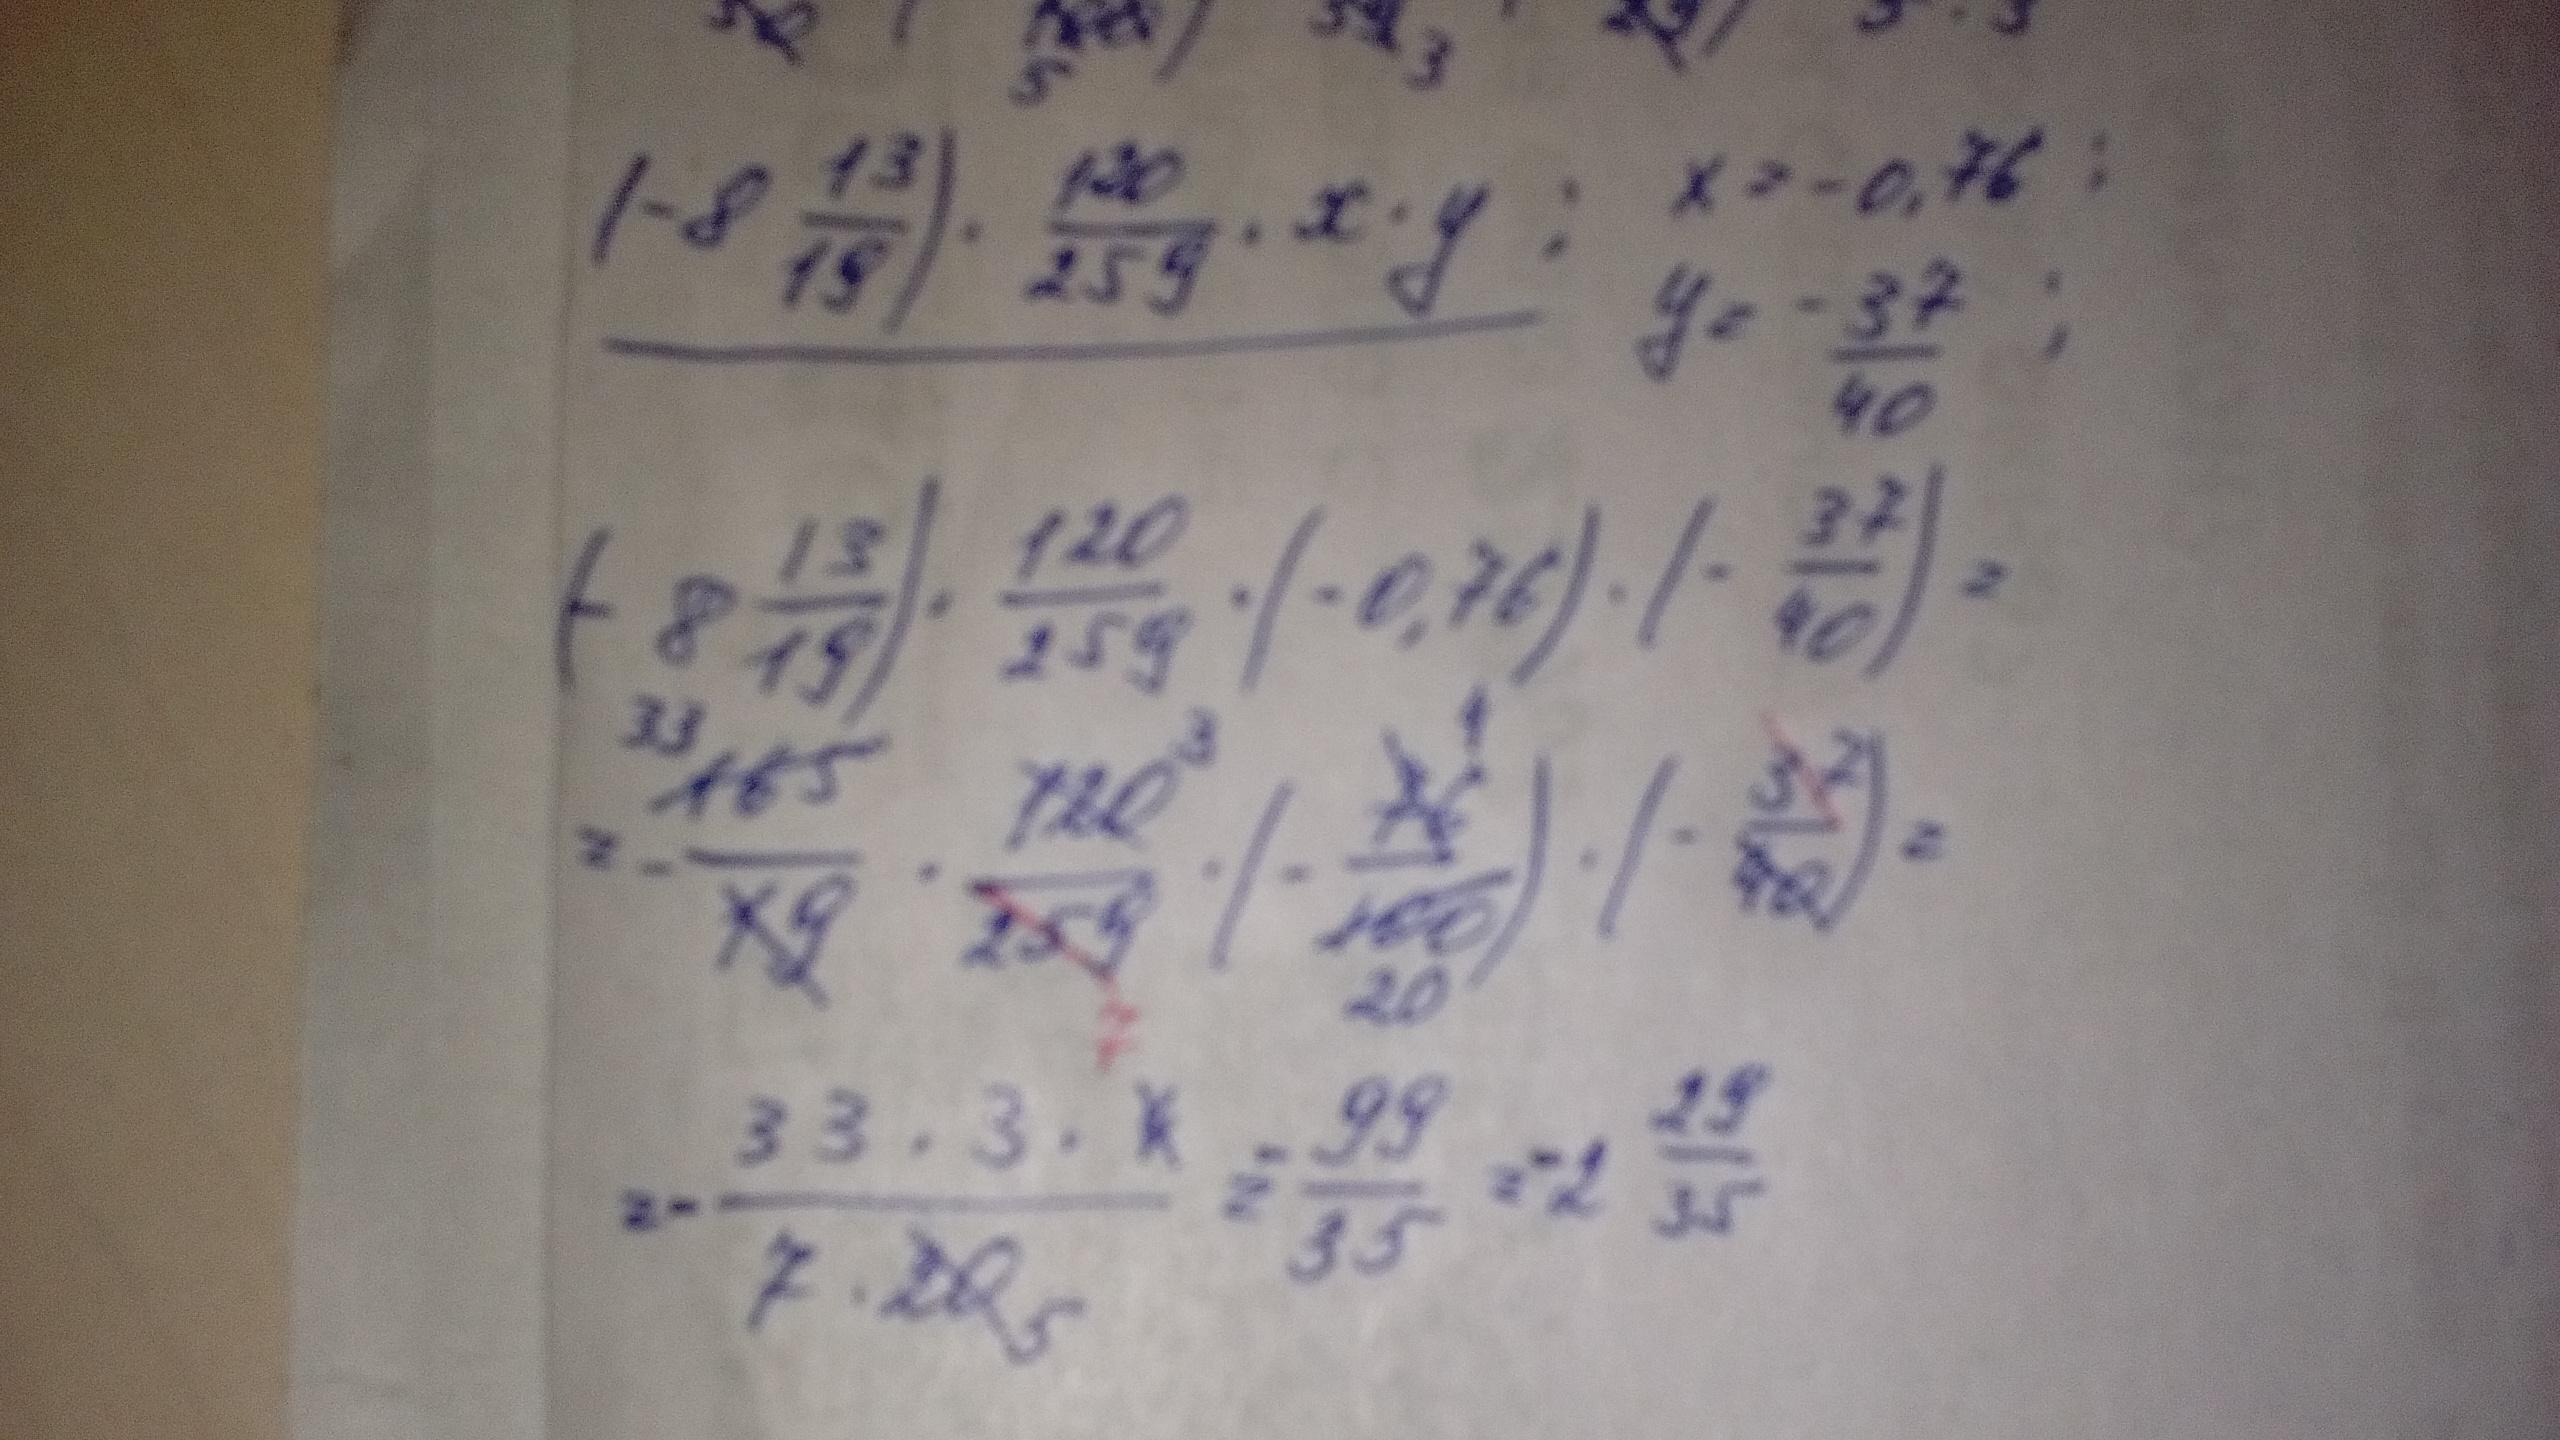 5 3 5 · 3
(-8 13/19) · 120/259 · x · y ; x = -0,76 ;
y = - 37/40 ;
(- 8 13/19) · 120/259 · (-0,76) · (- 37/40) =
33 3 1
= - 165/19 · 120/259 · (- 76/100) · (- 37/40) =
7 20
= - 33 · 3 · 4 / 7 · 20 5 = - 99/35 = -2 29/35